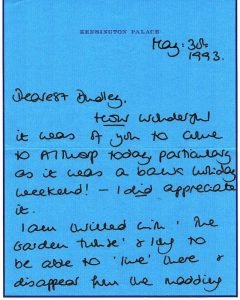 KENSINGTON PALACE
May: 30th
1993.
Dearest Dudley,
How wonderful
it was of you to come
to Althorp today, particularly
as it was a bank holiday
weekend! - I did appreciate
it.
I am thrilled with 'The
Garden House' & long to
be able to 'live' there &
disappear from the madding